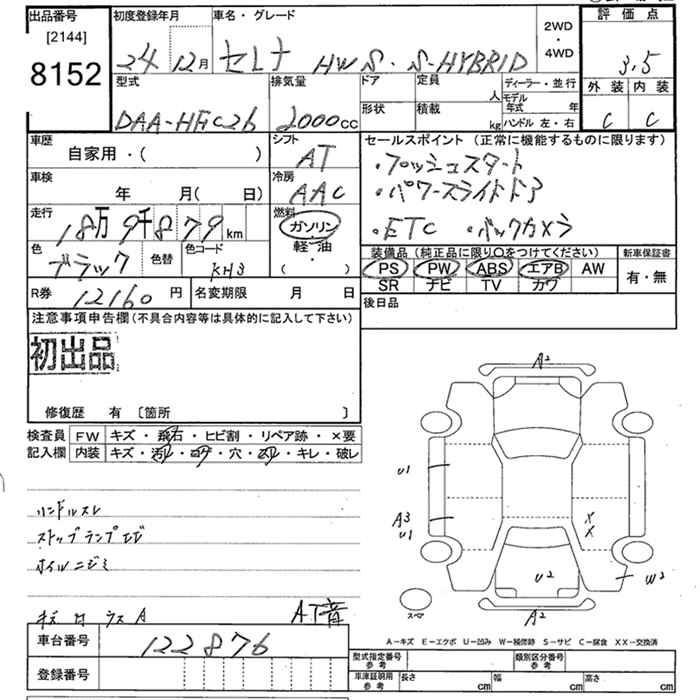 出品番号
[2144]
8152
初度登録年月
24 12月
車名・グレード
セレナ HWS・S-HYBRID
2WD
・
4WD
評価点
3.5
外装 内装
C C
型式
DAA-HFC26
排気量
2000cc
ドア
形状
定員
人
積載
kg
ディーラー・並行
モデル年式 年
ハンドル 左・右
車歴
自家用・( )
シフト
AT
車検
年 月(日)
冷房
AAC
走行
18万9千879km
燃料
ガソリン
軽油
・
( )
色
ブラック
色替
色コード
KH3
R券
12160円
名変期限 月 日
セールスポイント(正常に機能するものに限ります)
・プッシュスタート
・パワースライドドア
・ETC ・バックカメラ
装備品(純正品に限り○をつけてください)
PS PW ABS エアB AW
SR ナビ TV カワ
新車保証書
有・無
後日品
注意事項申告欄(不具合内容等は具体的に記入して下さい)
初出品
修復歴 有 〔箇所 〕
検査員記入欄
FW キズ・飛石・ヒビ割・リペア跡・×要
内装 キズ・汚れ・コゲ・穴・スレ・キレ・破レ
ハンドルスレ
ストップランプヒビ
ホイルニジミ
AT音
A2
U1
A3
U1
X
X
U2
W2
A2
スペア
A-キズ E-エクボ U-凹み W-補修跡 S-サビ C-腐食 XX-交換済
車台番号
122876
登録番号
型式指定番号
参考
類別区分番号
参考
車庫証明用
参考
長さ cm
幅 cm
高さ cm